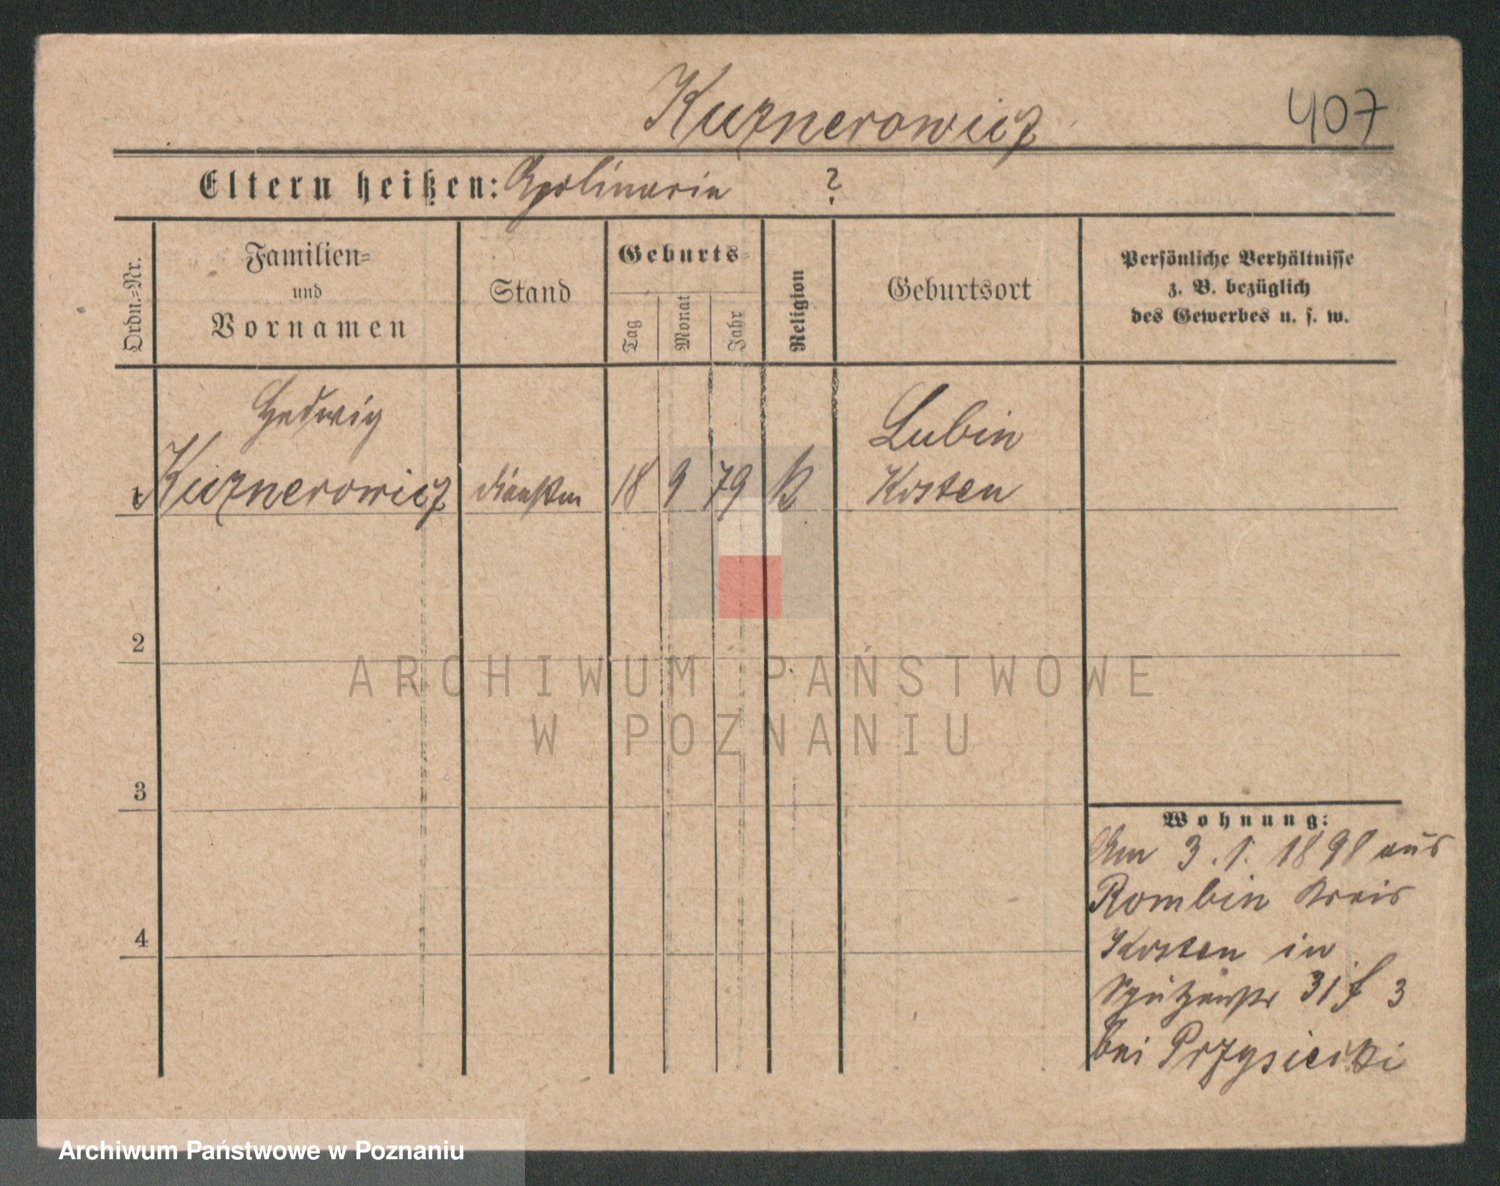 Kuznerowicz
407
Eltern heißen: Apolinaria ?
Ordn.=Nr.
Familien=
und
Vornamen
Stand
Geburts=
Tag
Monat
Jahr
Religion
Geburtsort
Persönliche Verhältnisse
z. B. bezüglich
des Gewerbes u. s. w.
Hedwig
Lubin
1 Kuznerowicz 18 9 79 K Kosten
2
3
4
Wohnung:
Am 3. 1. 1898 aus
Rombin Kreis
Kosten in
31 f 3
bei Przysiecki
ARCHIWUM PAŃSTWOWE
W POZNANIU
Archiwum Państwowe w Poznaniu